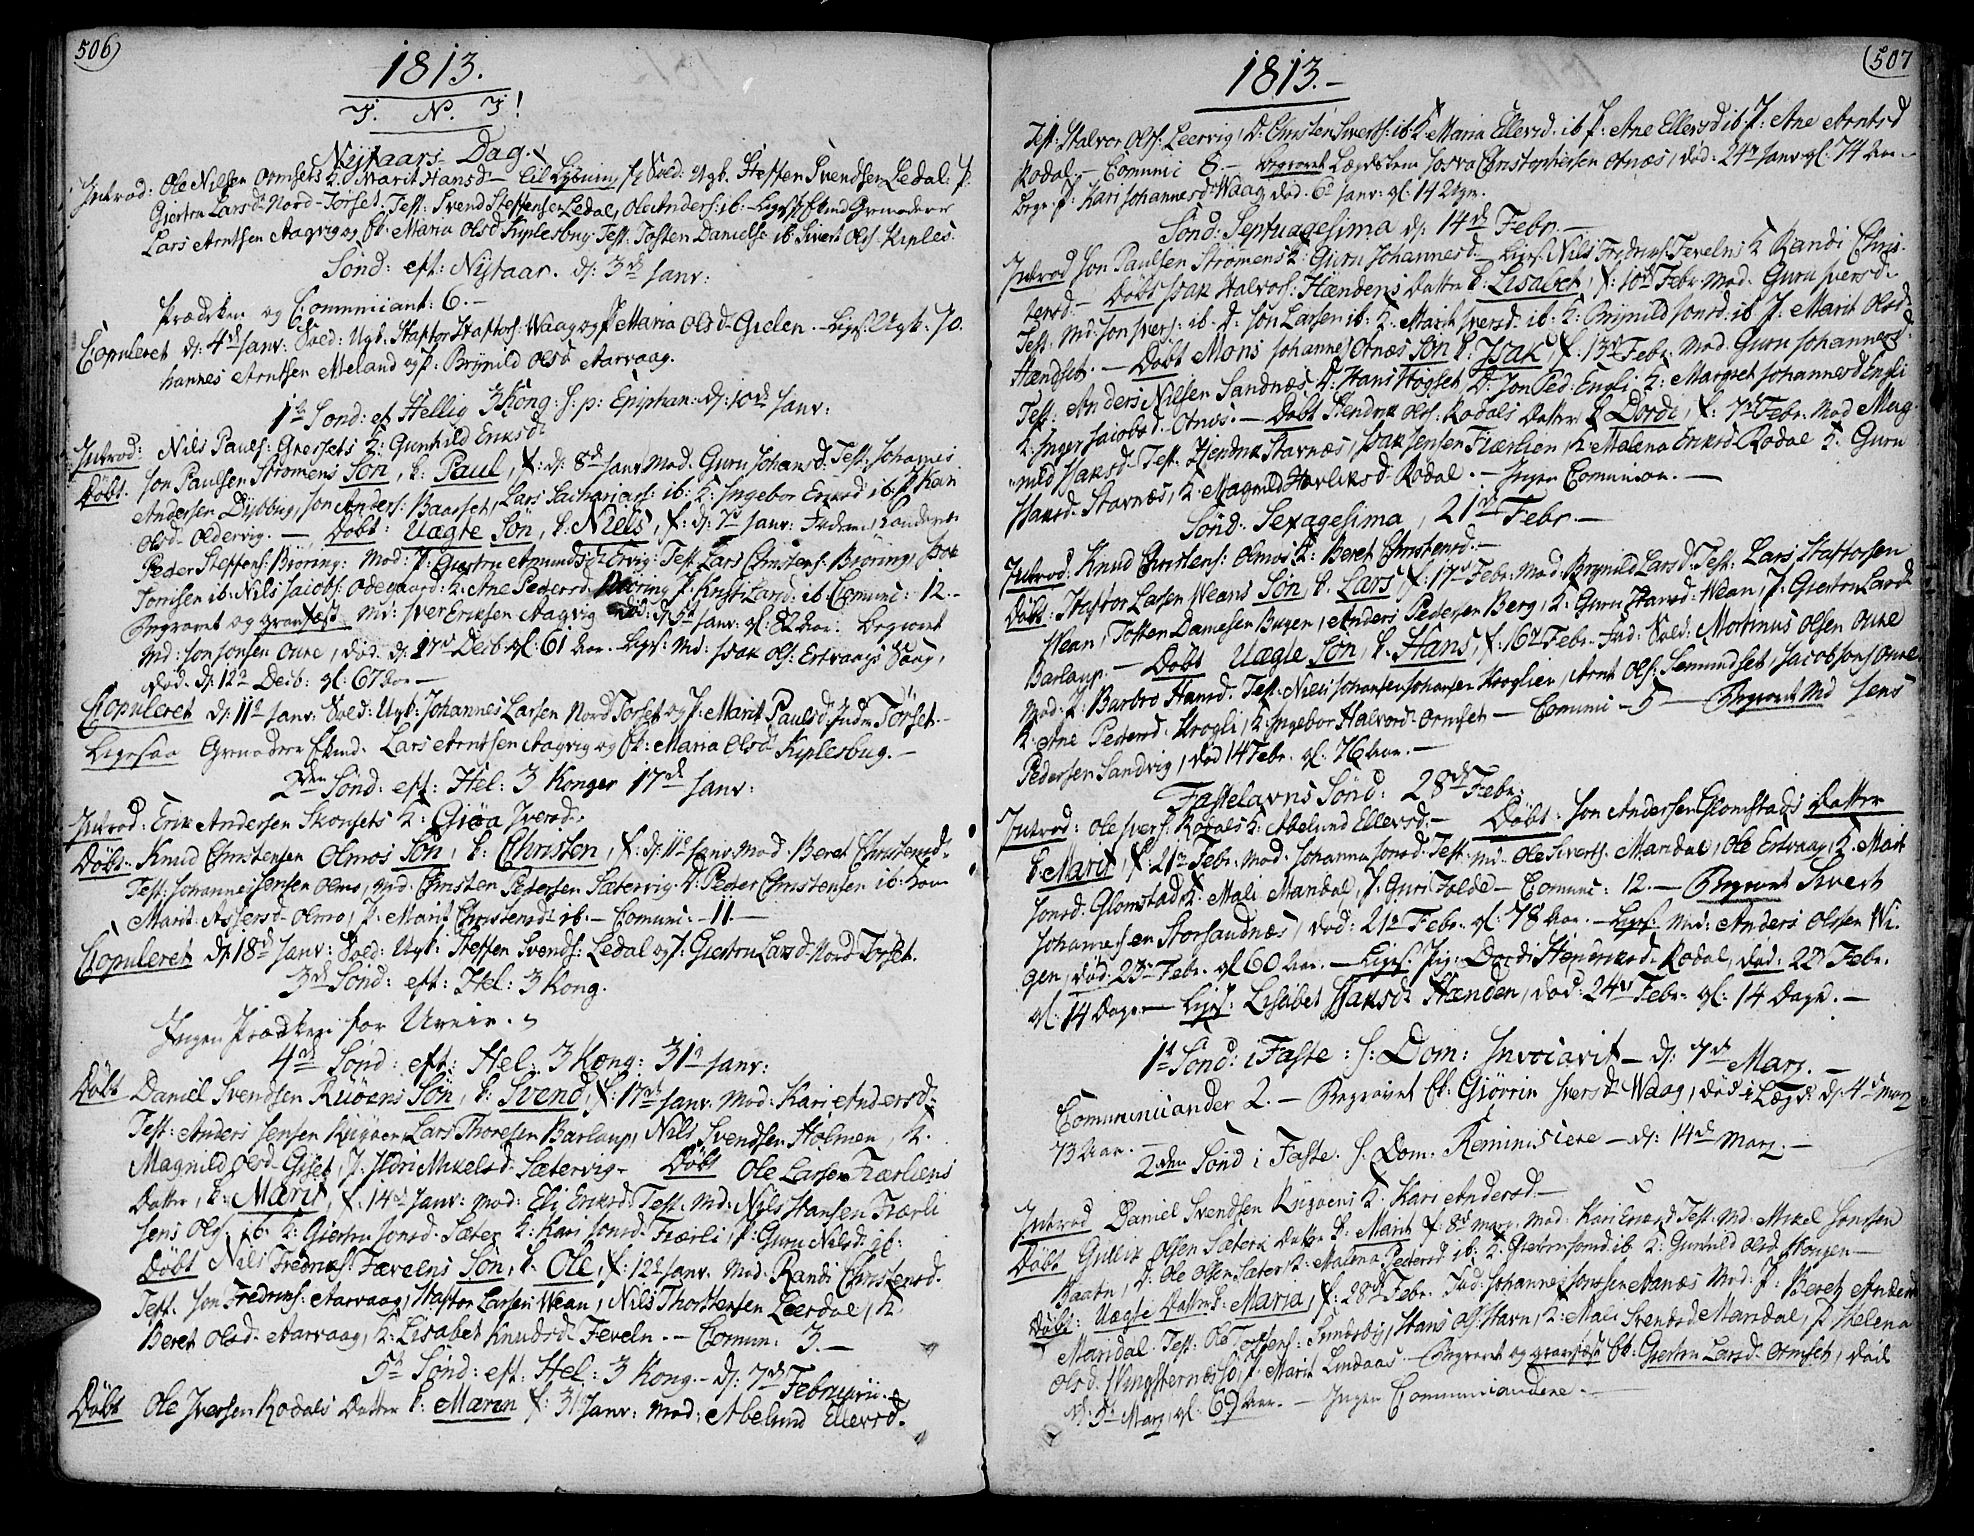 506)
1813.
J. N. J!
Nÿtaars Dag.
Introd: Ole Nilsen Ormsets K: Marit Hansd. Til Lÿsning f: Sold: Ugk. Steffen Svendsen Ledal: P:
Giertru Larsd. Nord-Torset. Test: Svend Steffensen Ledal, Ole Anders: ib. Ligs: Grenadeer
Lars Arntsen Aagvig og Ek: Maria Olsd Kiplesbug. Test: Tosten Danielse ib. Sivert Olss. Kiples.
Sönd: eft: Nÿtaar. d: 3d Janr:
Prædiken og Communicant: 6.
Copuleret d: 4d Janr: Sold: Ugk. Staffor Staffors: Waag og P. Maria Olsd. Gielen. Ligs: Ugk: Jo.
hannes Arntsen Meland og P. Brÿnild Olsd Aarvaag.
1te Sönd: ef Hellig 3 Kong: s: p: Epiphan: d: 10de Janr:
Introd: Nils Pauls: Gresets K: Gunhild Eriksd.
Döbt. Jon Paulsen Strömens Sön, k: Paul, f: d: 8d Janr. Mod. Guru Johansd. Test: Johanes
Andersen Dÿbbug, Jon Anders: Baarset, Lars Sachariars: ib: K: Ingebor Ericsd ib: P. Kari
Olsd. Oldervig. Döbt: Uægte Sön, k. Niels, f: d: 7d Janr: Faderen, Landeve
Peder Steffens: Biöring: Mod: P: Giertru Amundsd. Ervig. Test. Lars Christens: Biöring,
Jonsen ib: Nils Jacobs: Odegaard: K: Ane Pedersd. Biöring P. Kristi Larsd: ib: Comuni: 12.
Begravet og Graufæst Md: Iver Eriksen Aagvig död: d: 5t Janr: gl: 82 Aar. Begravet
Md: Jon Jonsen Oure, död. d: 27d Decb gl: 61 Aar. Ligs: Md: Isak Ols: Ertvaags Vaag,
död. d: 12d Decb: gl: 67 Aar
Copuleret d: 11d Janr: Sold: Ugk: Johannes Larsen Nord Torset og P: Marit Paulsd. Indre Törset.
Ligesaa Grenadeer Lars Arntsen Aagvig og Ek: Maria Olsd Kiplesbug.
2den Sönd: eft: Hel: 3 Konger 17d Janr:
Introd: Erik Andersen Skorsets K: Giöa Iversd.
Döbt. Knud Christensen Olmos Sön, k: Christen, f: d: 11d Janr Mod. Beret Christensd.
Test: Johannes Jensen Olmo, Md. Christen Pedersen Sætervig. D: Peder Christensen ib:
Marit Assersd. Olmo, P: Marit Christensd: ib. Comuni: 11.
Copuleret d: 18d Janr: Sold: Ugk: Steffen Svends: Ledal og P: Giertru Larsd. Nord Torset.
3d Sönd: eft: Hel: 3 Kong.
Ingen Prædiken for Uveir.
4d Sönd: eft: Hel: 3 Kong: 31d Janr:
Döbt Daniel Svendsen Ruöens Sön, k: Svend, f: 17d Janr. Mod: Kari Andersd.
Test: Anders Jensen Rugoen, Lars Thoresen Barlaup, Nils Svendsen Holmen, K.
Magnild Olsd. Giset, P. Ildri Mikelsd. Sætervig. Döbt Ole Larsen Fiærliens
Datter, k: Marit, f: 14d Janr: Mod: Eli Eriksd. Test: Md: Nils Hansen Fiærli
Jens Ols: ib. K: Giertru Jonsd. Sæter K: Kari Jonsd. Fiærli, P: Guru Nilsd:
Döbt Nils Fredriks: Fævelens Sön, k. Ole, f: 12d Janr. Mod. Randi Christensd.
Test. Jon Fredriks: Aarvaag, Staffor Larsen Wean, Nils Thorstensen Leerdal, K.
Beret Olsd. Aarvaag, K: Lisabet Knudsd. Feveln. Comun: 3.
5t Sönd: eft: Hel: 3 Kong. d: 7d Februarii.
Döbt Ole Iversen Rodals Datter k: Maren f: 31 Janr: Mod: Abelund Ellersd.
507
1813.
Test. Halvor Ols: Leervig, D: Christen Siverts: ib. K: Maria Ellersd. ib P: Ane Ellersd ib P: Ane Arntsd
Rodal. Comuni 8. Begravet Lægdslem Josva Christophersen Otnæs, död: 24d Janr. gl: 74 Aar.
Begr. P: Kari Johannesd Waag död. 6d Janr: gl. 14 Uger.
Sönd: Septuagesima d: 14d Febr.
Introd Jon Paulsen Strömens K: Guru Johannesd. Ligs. Nils Fredriks: Fevelns K Randi Chris.
tensd. Döbt Isak Halvors: Hændens Datter k. Lisabet, f. 10d Febr. Mod. Guru Iversd.
Test. Md: Jon Ivers: ib. D. Jon Larsen ib: K. Marit Iversd. ib: K: Brÿnild Jonsd: ib P. Marit Olsd.
Hændset. Döbt Mons Johannes: Otnæs Sön k. Isak, f. 13d Febr. Mod Guru Johannesd.
Test: Anders Nilsen Sandnæs, D: Hans Hogset, D: Jon Ped: Engli K: Margret Johannesd Engli
K: Inger Jacobsd. Otnæs. Döbt Hendrik Ols: Rodals Datter k Dordi, f: 7d Febr. Mod Mag.
nild Isaksd. Test. Hendrik Starnæs, Isak Jensen Fiærlien, K. Malena Eriksd. Rodal K. Guru
Isaksd. Starnæs, K. Magnild Harliksd. Rodal. Ingen Comunion.
Sönd: Sexagesima, 21d Febr.
Introd. Knud Christens: Olmos K: Beret Christensd.
Döbt: Staffor Larsen Weans Sön k. Lars f: 17d Febr. Mod Brÿnild Larsd. Test. Lars Staffor​sen
Wean, Tosten Danielsen Bugen, Anders Pedersen Berg, K. Guru Hansd. Wean, P. Giertru Larsd
Barlaup. Döbt Uægte Sön, k. Hans, f. 16d Febr. Fad: Sold: Mortinus Olsen Oure
Mod. P. Barbro Hansd. Test. Niels Johansen Kroglien, Arnt Ols: Semundset, Jacob Jons: Oure
K. Ane Pedersd. Krogli, K. Ingebor Halvord. Ormset. Comuni 5. Begravet Md Jens
Pedersen Sandvig, död 14 Febr. gl. 76 Aar.
Fastelavns Sönd: 28d Febr:
Introd: Ole Ivers: Rodals K. Abelund Ellersd. Döbt: Jon Andersen Glomstads Datter
k. Marit, f: 21d Febr. Mod. Johanna Jonsd. Test. Md. Ole Siverts. Mandal, Ole Ertvaag, K. Marit
Jonsd. Glomstad, K. Mali Mandal, P. Guri Folde. Comuni: 12. Begravet Sivert
Johannesen Storsandnæs, död: 21d Febr. gl: 78 Aar. Ligs: Md: Anders Olsen Wi.
gen, död: 23d Febr. gl 60 Aar. Ligs. Pig: Dordi Hendriksd. Rodal, död: 22d Febr.
gl: 14 Dage. Ligs: Lisabet Isaksd. Hænden, död: 24d Febr. gl: 14 Dage.
1t Sönd: i Faste: s: Dom: Invocavit d: 7d Marz.
Communicander 2. Begravet Ek: Giörrin Iversd. Waag, död i Lægd d: 4d Marz
73 Aar.
2den Sönd i Faste. s. Dom. Reminiscere d: 14d Marz.
Introd Daniel Svendsen Rugoens K. Kari Andersd.
Döbt Gullik Olsen Sæters Datter k. Marit f. 8d Marz. Mod. Kari Ericsd Test. Md. Mikel Jonssen
Baatn, D. Ole Olsen Sæter, K. Malena Pedersd ib. K. Giertru Jonsd. ib. K. Gunhild Olsd. Stongen
Döbt: Uægte Datter k: Maria, f. 28d Febr. Fad: Johannes Jonssen Aanæs Mod: P. Beret Andersd
Mandal. Test. Ole Tostens: Sundsbÿ, Hans Ols Stavn, K. Mali Svendsd Mandal, P. Helena
Olsd. P. Marit Lindaas. Begravet og graufæst Ek: Giertru Larsd. Ormset, död
d. 5t Marz, gl. 69 Aar. Ingen Communicandere.